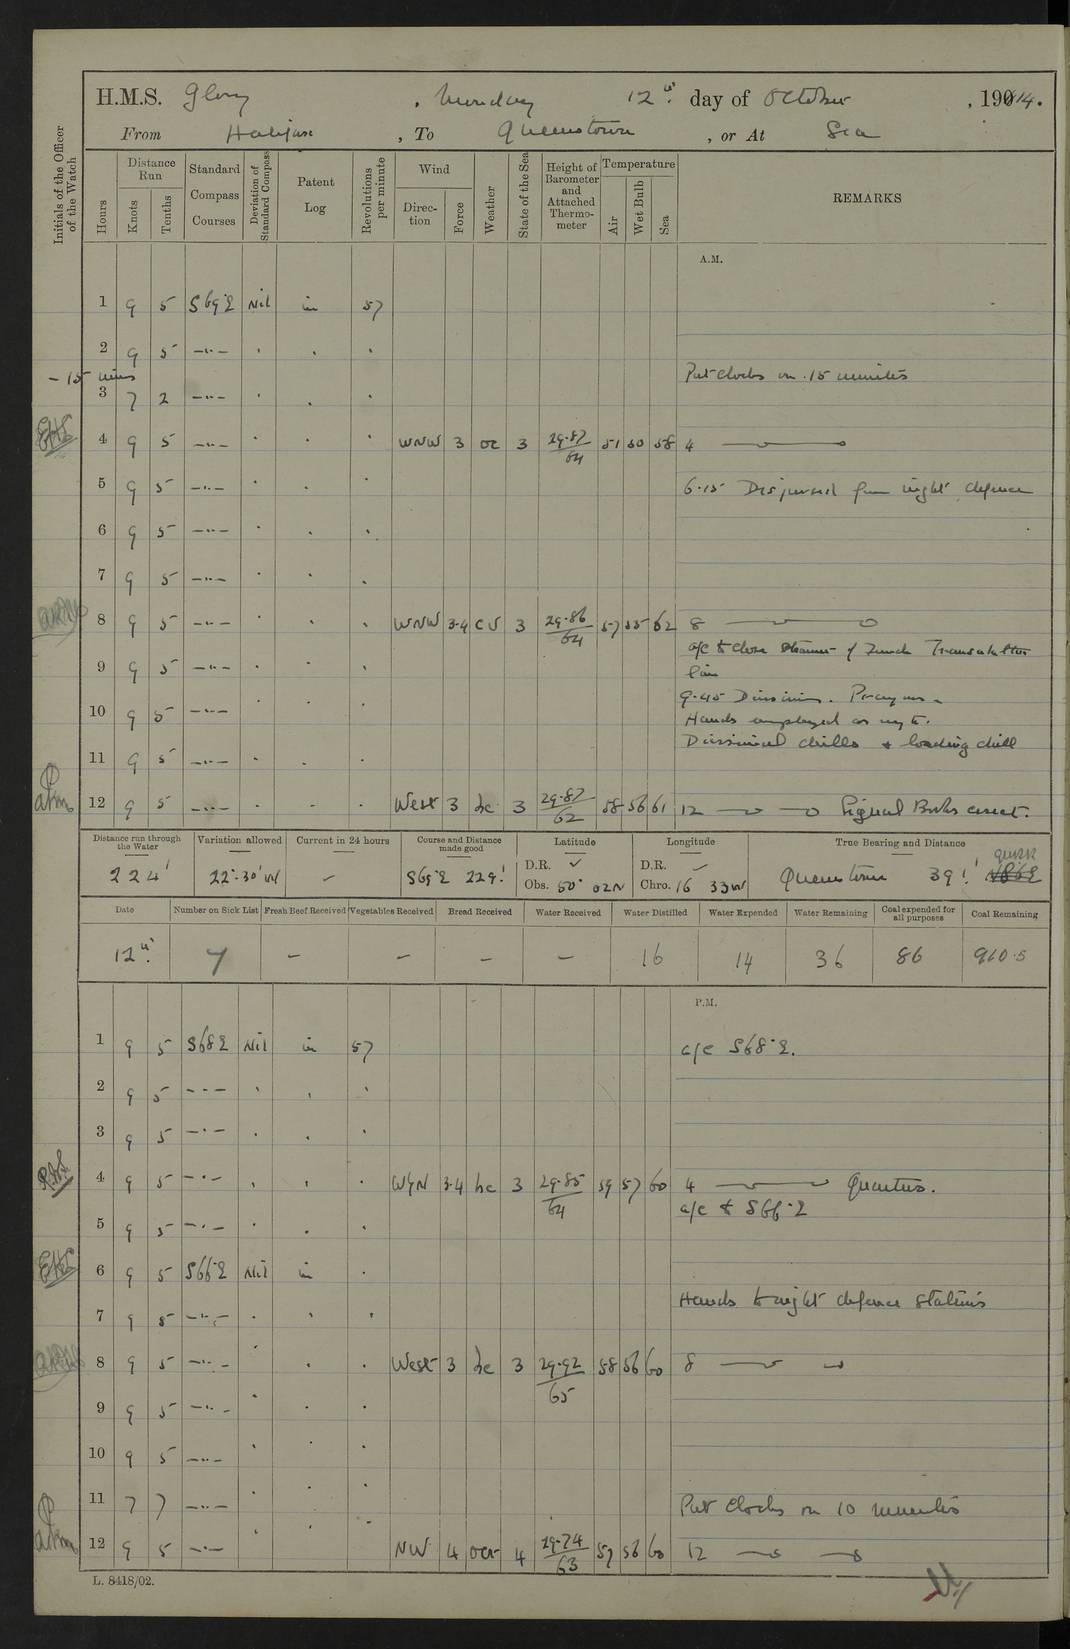 H.M.S. Glory, Monday 12th day of October, 1914.
From Halifax, To Queenstown, or At Sea
Initials of the Officer of the Watch
Hours
Distance Run
Knots
Tenths
Standard Compass Courses
Deviation of Standard Compass
Patent Log
Revolutions per minute
Wind
Direction
Force
Weather
State of the Sea
Height of Barometer and Attached Thermometer
Temperature
Air
Wet Bulb
Sea
REMARKS
A.M.
1 9 5 S69°E Nil in 57
2 9 5 —"— . . .
- 15 mins Put clocks on 15 minutes
3 7 2 —"— . .
4 9 5 —"— . . . WNW 3 oc 3 29.87/64 51 50 58 4
5 9 5 —"— . . . 6.15 Dispersed from night defence
6 9 5 —"— . . .
7 9 5 —"— . . .
8 9 5 —"— . . . WNW 3-4 cu 3 29.86/64 57 55 62 8
a/c to close steamer of Transatlantic
line
9 9 5 —"— . . .
9.45 Divisions. Prayers.
10 9 5 —"— . . . Hands employed as nec.
Divisional drills & loading drill
11 9 5 —"— . . .
12 9 5 —"— . . . West 3 bc 3 29.87/62 58 56 61 12 Signal Books correct.
Distance run through the Water
Variation allowed
Current in 24 hours
Course and Distance made good
Latitude
Longitude
True Bearing and Distance
224' 22°.30'W — S69°E 229' D.R. ✓ D.R. —
Obs. 50° 02N Chro. 16 33W Queenstown 39!
Date
Number on Sick List
Fresh Beef Received
Vegetables Received
Bread Received
Water Received
Water Distilled
Water Expended
Water Remaining
Coal expended for all purposes
Coal Remaining
12th 7 — — — — 16 14 36 86 910.5
P.M.
1 9 5 S68E Nil in 57 a/c S68°E.
2 9 5 —"— . . .
3 9 5 —"— . . .
4 9 5 —"— . . . WbN 3-4 bc 3 29.85/64 59 57 60 4 Quarters.
a/c to S66°E
5 9 5 —"— . . .
6 9 5 S66°E Nil in .
Hands to night defence stations
7 9 5 —"— . . .
8 9 5 —"— . . . West 3 bc 3 29.92/65 58 56 60 8
9 9 5 —"— . . .
10 9 5 —"— . . .
11 7 7 —"— . . . Put clocks on 10 minutes
12 9 5 —"— . . NW 4 ocr 4 29.74/63 57 56 60 12
L. 8418/02.